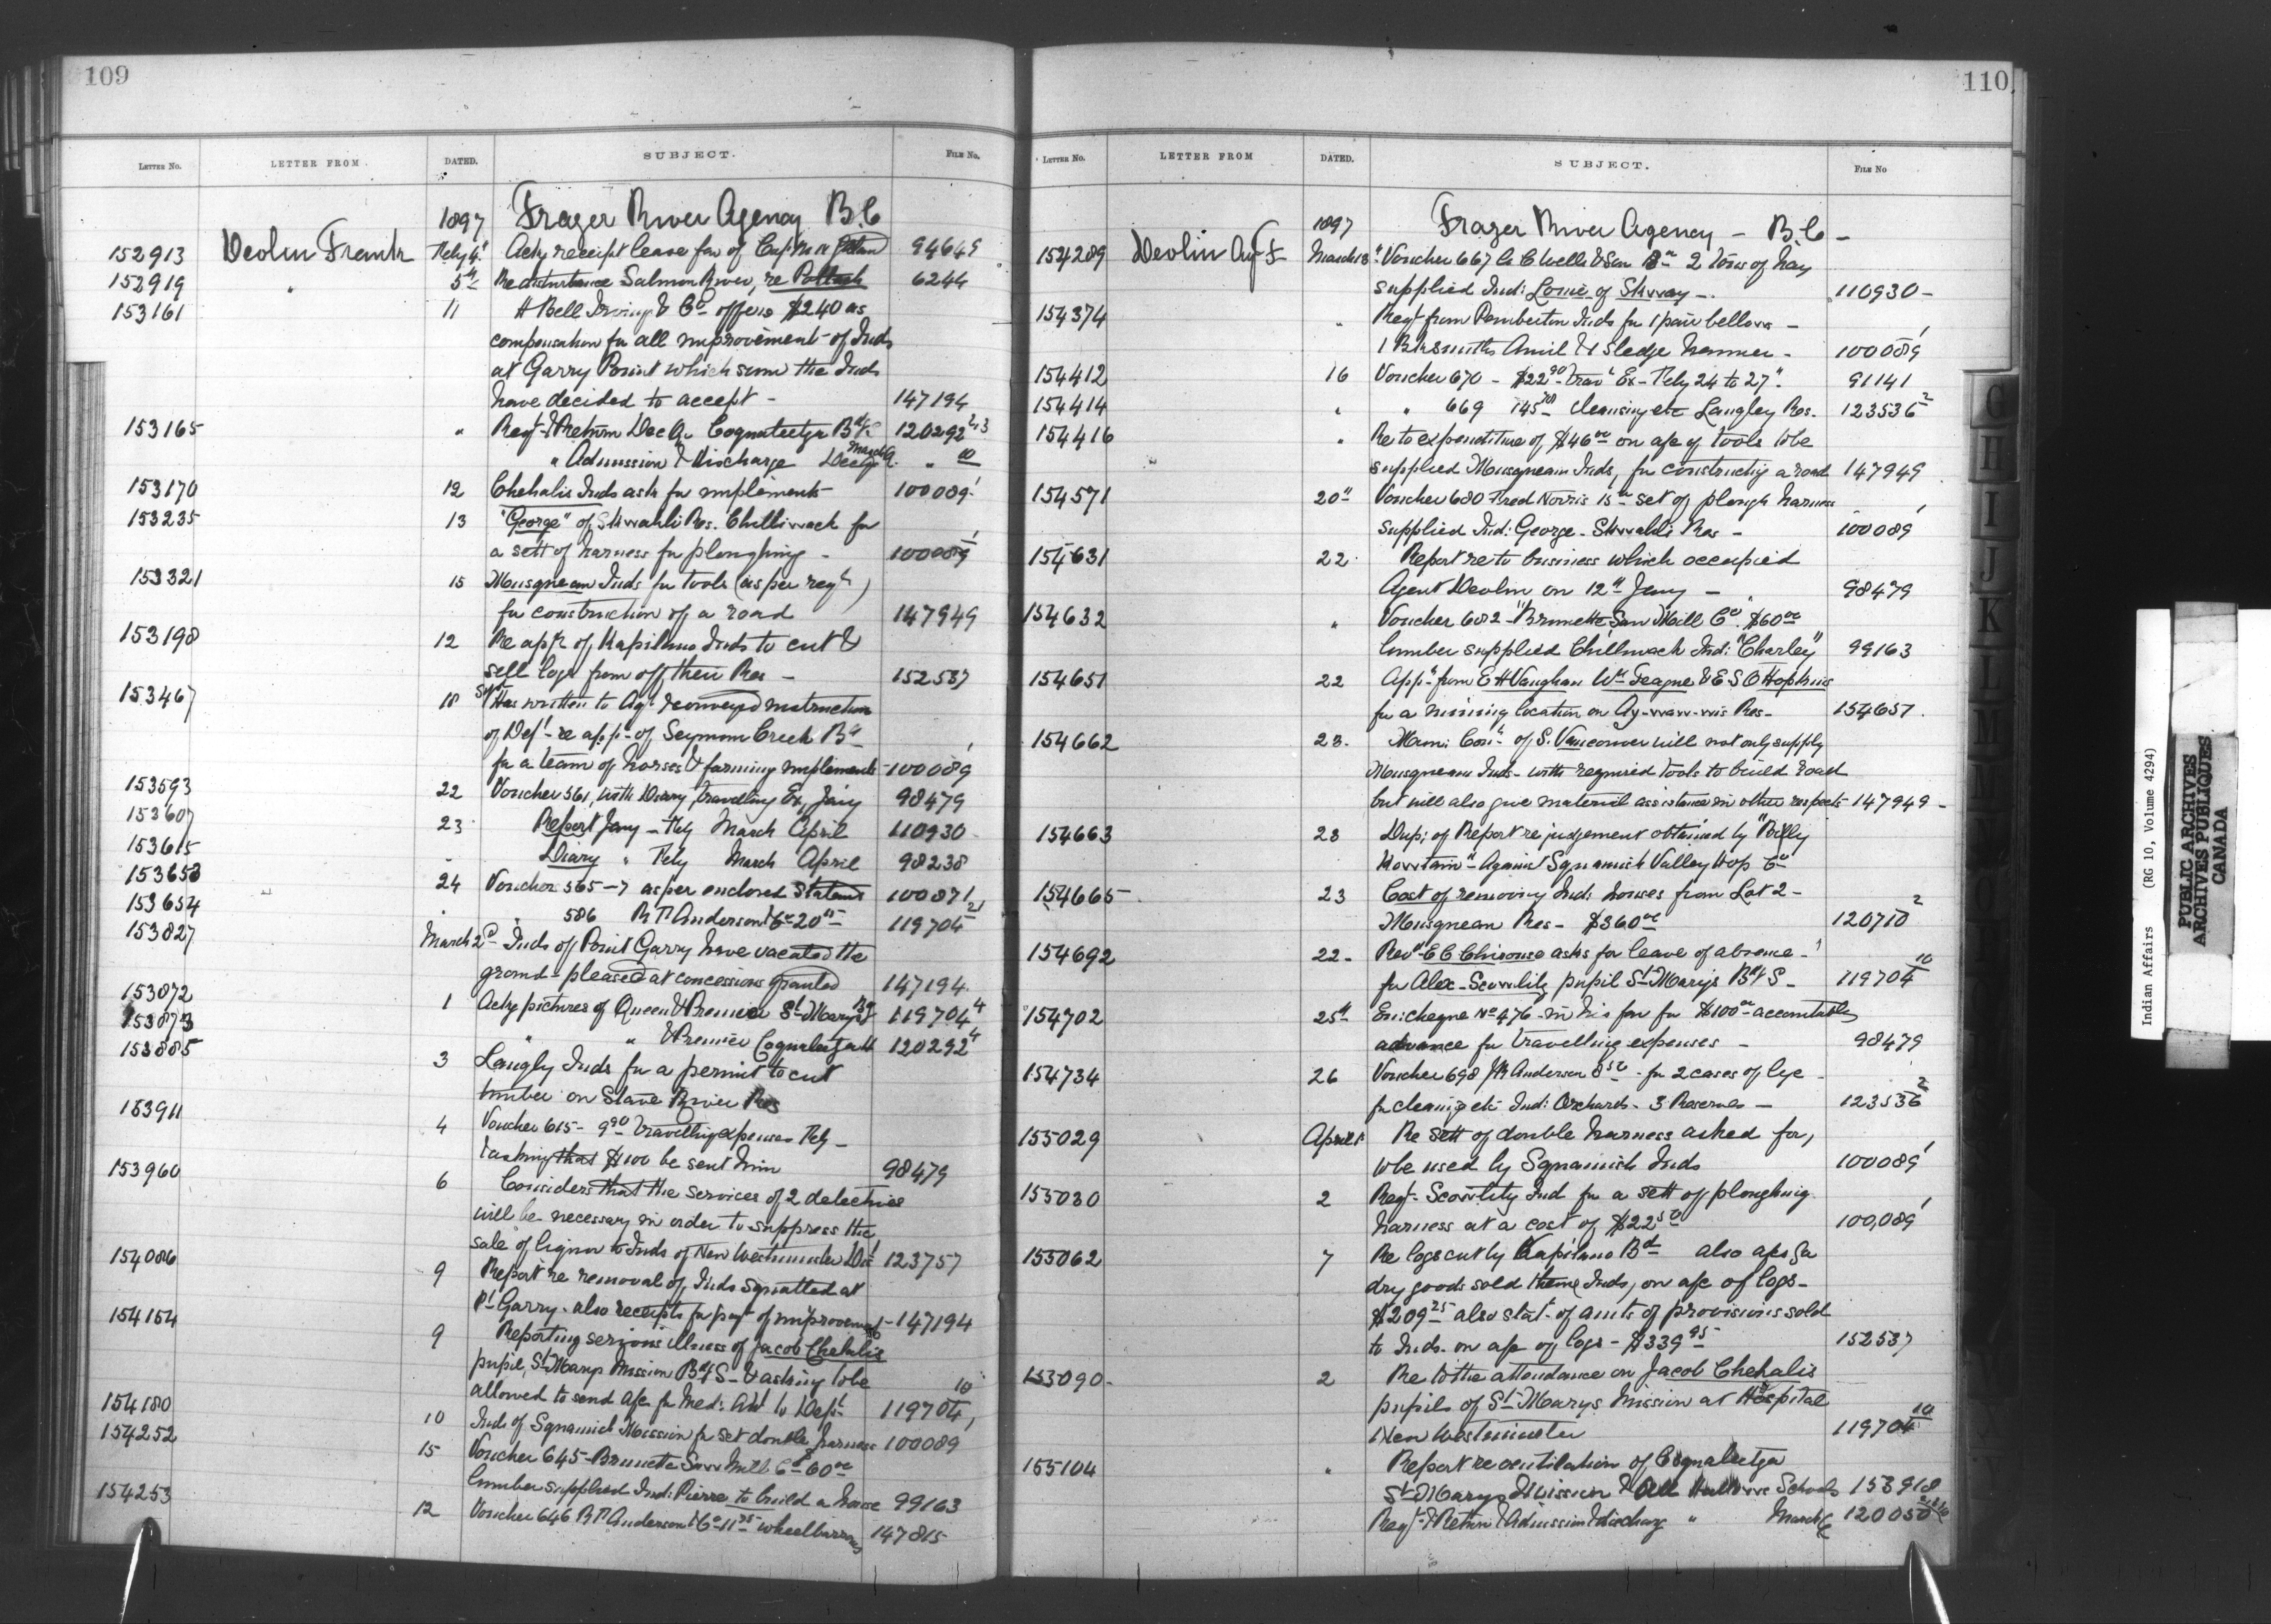 109
LETTER No. LETTER FROM. DATED. SUBJECT. FILE No.
1897 Frazer River Agency B.C
152913 Devlin Frank Feby 4 Ackg receipt lease fav of Cap 94649
152919 " 5th Re disturbance Salmon River, re Pollock 6244
153161 11 H Bell Irving & Co offers $240 as
compensation for all improvements of Inds
at Garry Point which sum the Inds
have decided to accept - 147194
153165 " Reqt & Return Dec Qr Coqualeetza Bdg S 120292 2,3
" Admission & Discharge Decr March Q. " 10
153170 12 Chehalis Inds ask for implements 100089 1
153235 13 "George" of Skwahli Res. Chilliwack for
a sett of harness for ploughing - 100089 1
153321 15 Musqueam Inds for tools (as per reqn)
for construction of a road 147949
153198 12 Re appn of Kapilano Inds to cut &
sell logs from off their Res - 152537
153467 18 Has written to Agt & conveyed instruction
of Dept re appn of Seymour Creek Bd
for a team of horses & farming implements - 100089 1
153593 22 Voucher 561, with Diary travelling Ex, Jany 98479
153607 23 Report Jany - Feby March April 110930
153615 " Diary " Feby March April 98238
153653 24 Voucher 565-7 as per enclosed Statemt 100871
153654 " " 586 R T Anderson & Co 20 119704
153827 March 2d Inds of Point Garry have vacated the
ground - pleased at concessions granted 147194
153872 1 Ackg pictures of Queen & Premier St Marys 119704 4
153873 " " & Premier Coqualeetza 120292 4
153885 3 Langly Inds for a permit to cut
timber on Stave River Res
153911 4 Voucher 615 - 9 90 travelling expenses Feby -
& asking that $100 be sent him 98479
153960 6 Considers that the services of 2 detectives
will be necessary in order to suppress the
sale of liquor to Inds of New Westminster Dis 123757
154086 9 Report re removal of Inds squatted at
Pt Garry - also receipts for payt of improvements - 147194
154154 9 Reporting serious illness of Jacob Chehalis
pupil, St Marys Mission Bdg S - & asking to be
allowed to send a/c for Med: Att to Dept 119704 10
154180 10 Inds of Squamish Mission for set double harness 100089 1
154252 15 Voucher 645 - Brunette Saw Mill Co 60 00
lumber supplied Ind: Pierre to build a house 99163
154253 12 Voucher 646 R T Anderson & Co 11 75 wheelbarrows 147815
110
LETTER No. LETTER FROM DATED. SUBJECT. FILE No
1897 Frazer River Agency - B.C -
154289 Devlin Agt F March 8 Voucher 667 A C Wells & Son 2 Tons of hay
supplied Ind: Louie of Skway - 110930 -
154374 " Reqt from Pemberton Inds for 1 pair bellows -
1 Blksmiths Anvil & 1 Sledge hammer - 100089 1
154412 16 Voucher 670 - $22 90 Trav Ex - Feby 24 to 27 91141
154414 " " 669 145 cleansing etc Langley Res. 123536 2
154416 " Re to expenditure of $46 00 on a/c of tools to be
supplied Musqueam Inds, for constructing a road 147949
154571 20th Voucher 680 Fred Norris 15 set of plough harness
supplied Ind: George - Skwahli Res - 100089 1
154631 22 Report re to business which occupied
Agent Devlin on 12th Jany - 98479
154632 " Voucher 682 - Brunette Saw Mill Co $60 00
lumber supplied Chilliwack Ind: "Charley" 99163
154651 22 Appn from E H Vaughan Wm Teague & E S O Hopkins
for a mining location on Ay-waw-wis Res - 154651
154662 23 Muni: Coun of S. Vancouver will not only supply
Musqueam Inds - with required tools to build road
but will also give material assistance in other respects 147949 -
154663 23 Dup: of Report re judgement obtained by "Billy
" Against Squamish Valley Hop Co
154665 23 Cost of removing Ind: houses from Lot 2 -
Musqueam Res - $360 00 120710 2
154692 22 - Revd E C Chirouse asks for leave of absence -
for Alex - Scowlitz pupil St Marys Bdg S - 119704 10
154702 25th Encl cheque No 476 - in his fav for $100 00 accountable
advance for travelling expenses - 98479
154734 26 Voucher 698 J R Anderson 8 50 - for 2 cases of lye -
for cleaning etc Ind: Orchards - 3 Reserves - 123536 2
155029 April 1 Re sett of double harness asked for,
to be used by Squamish Inds 100089 1
155030 2 Reqt - Scowlitz Ind for a sett of ploughing
harness at a cost of $22 50 100,089 1
155062 7 Re logs cut by Kapilano Bd also a/cs for
dry goods sold these Inds, on a/c of logs -
$209 25 also stat of amts of provisions sold
to Inds - on a/c of logs - $339 95 152537
155090 - 2 Re to the attendance on Jacob Chehalis
pupil of St Marys Mission at Hospital
New Westminster 119704 10
155104 " Report re ventilation of Coqualeetza
St Marys Mission & All Hallows Schools 153918
Reqt & Return & Admission & discharg " March Q 120050
Indian Affairs (RG 10, Volume 4294)
PUBLIC ARCHIVES
ARCHIVES PUBLIQUES
CANADA
G
H
I
J
K
L
M